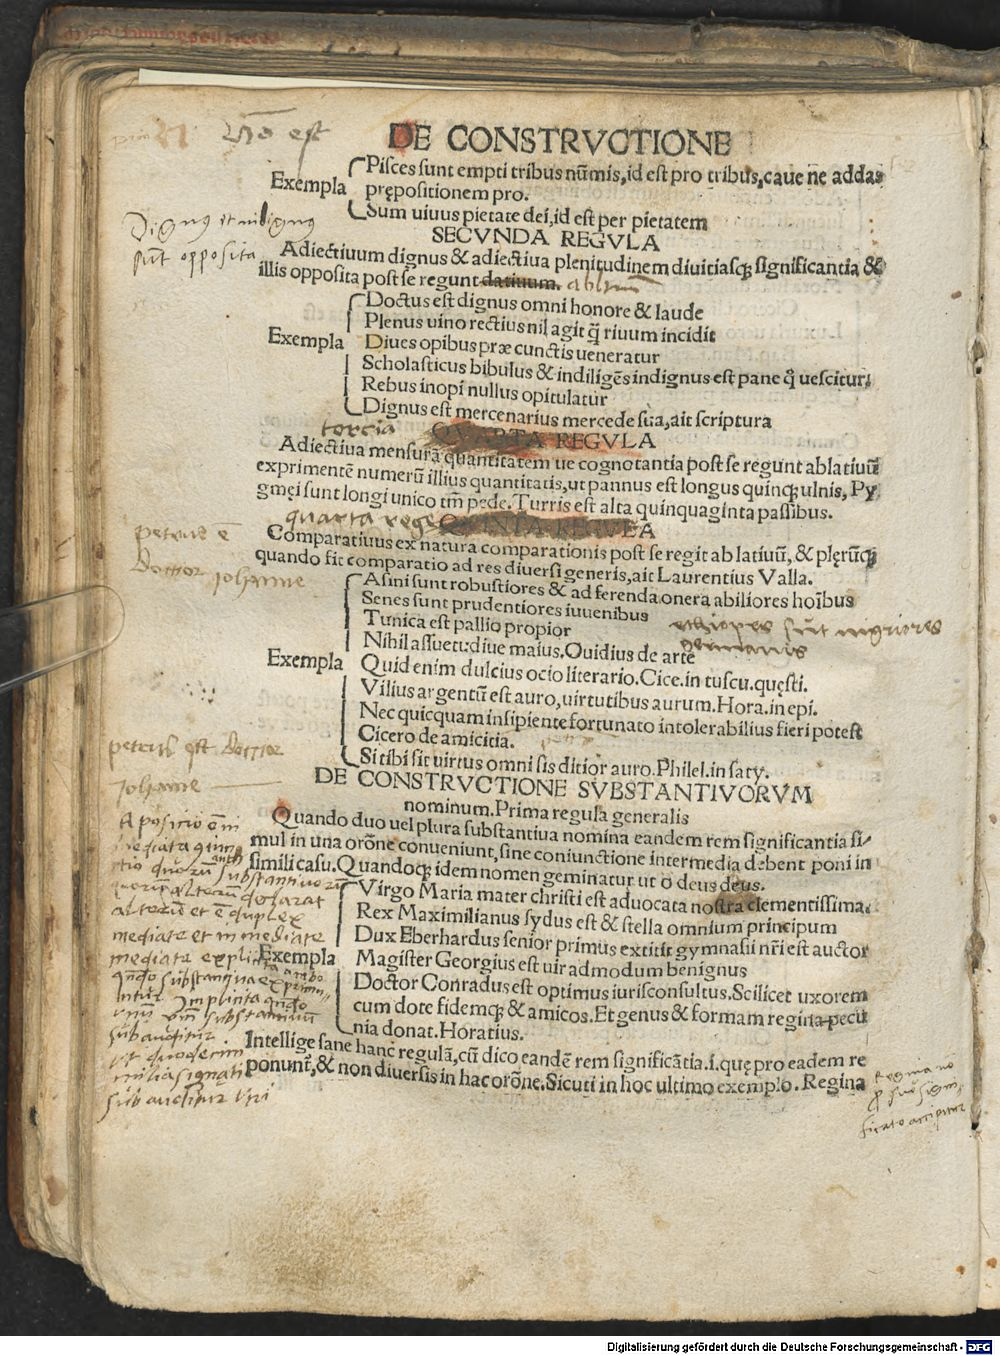 DE CONSTRVCTIONE
Pisces sunt empti tribus nūmis, id est pro tribus, caue ne addas
Exempla prępositionem pro.
Sum uiuus pietate dei, id est per pietatem
Dignus et indignus
sūt opposita
SECVNDA REGVLA
Adiectiuum dignus & adiectiua plenitudinem diuitiasq; significantia &
illis opposita post se regunt datiuum. abltm̄
Doctus est dignus omni honore & laude
Plenus uino rectius nil agit q̄ riuum incidit
Exempla Diues opibus præ cunctis ueneratur
Scholasticus bibulus & indiligēs indignus est pane q̄ uescitur;
Rebus inopi nullus opitulatur
Dignus est mercenarius mercede sua, ait scriptura
tercia QVARTA REGVLA
Adiectiua mensurā quantitatem ue cognotantia post se regunt ablatiuū
exprimentē numerū illius quantitatis, ut pannus est longus quinq; ulnis, Py
gmęi sunt longi unico tm̄ pede. Turris est alta quinquaginta passibus.
quarta rege QVINTA REGVLA
Comparatiuus ex natura comparationis post se regit ablatiuū, & plęrūq;
quando fit comparatio ad res diuersi generis, ait Laurentius Valla.
petrus ē
Doctor Johanne
Asini sunt robustiores & ad ferenda onera abiliores hoībus
Senes sunt prudentiores iuuenibus
Tunica est pallio propior
ethiopes sūt nigriores
germanis
Nihil assuetudiue maius. Ouidius de arte
Exempla Quid enim dulcius ocio literario. Cice. in tuscu. quęsti.
Vilius argentū est auro, uirtutibus aurum. Hora. in epi.
Nec quicquam insipiente fortunato intolerabilius fieri potest
Cicero de amicitia.
Si tibi sit uirtus omni sis ditior auro. Philel. in saty.
petrus est Doctor
Johanne
DE CONSTRVCTIONE SVBSTANTIVORVM
nominum. Prima regula generalis
Quando duo uel plura substantiua nomina eandem rem significantia si/
mul in una orōne conueniunt, sine coniunctione intermedia debent poni in
simili casu. Quandoq; idem nomen geminatur ut o deus deus.
Virgo Maria mater christi est aduocata nostra clementissima.
Rex Maximilianus sydus est & stella omnium principum
Dux Eberhardus senior primus extitit gymnasii nr̄i est auctor
Exempla Magister Georgius est uir admodum benignus
Doctor Conradus est optimus iurisconsultus. Scilicet uxorem
cum dote fidemq; & amicos. Et genus & formam regina pecu
nia donat. Horatius.
Intellige sane hanc regulā, cū dico eandē rem significātia. i. quę pro eadem re
ponunt᷑, & non diuersis in hac orōne. Sicuti in hoc ultimo exemplo. Regina
alterum et ē duplex
mediate et immediate
mediate explicita
sub auditur
Regina nō
ꝓ suo signi-
ficato accipitur
Digitalisierung gefördert durch die Deutsche Forschungsgemeinschaft - DFG